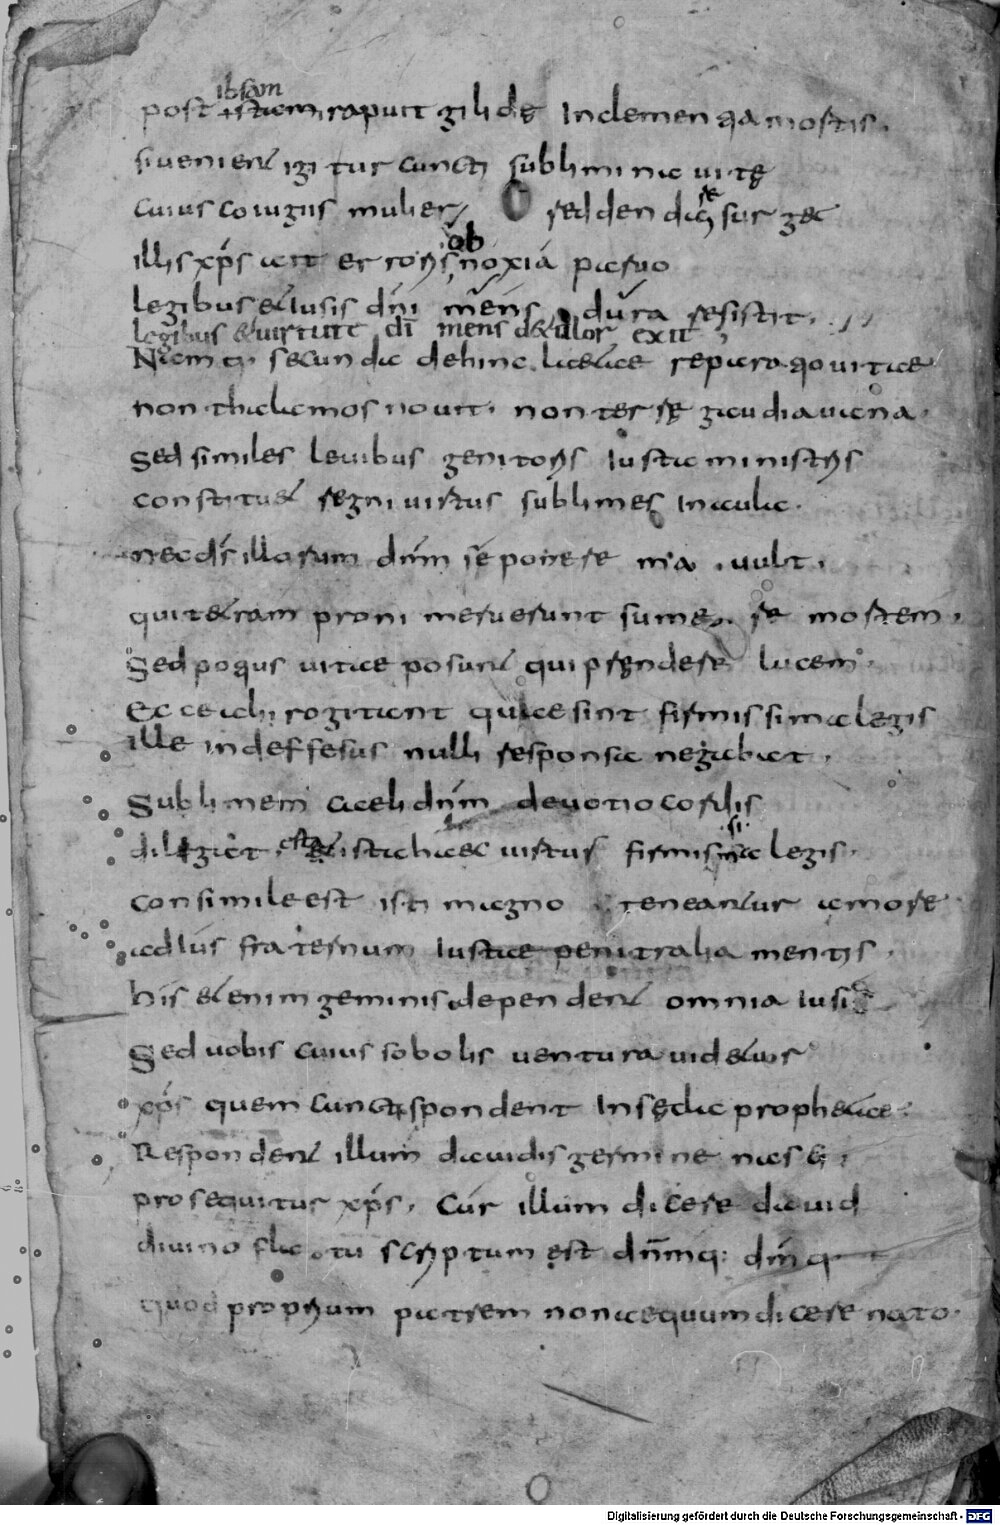 ibsam
post istam rapuit gelide Inclemen tia mortis.
si venient igi tur cuncti sublimi na vite
re
cuius coiugiis mulier, sed den dicti sur gat
ob
illis xp̅s ait erroris noxia patuo
legibus et iusis dn̅i mens dura resistit.
legibus et uirtute di̅ mens exit
Nam tu secun da dehinc lucetae reparatio uitae
non thalamos nouit. non terre gaudia uana.
Sed similes leuibus genitoris Iusta ministris
constituet regni uirtus sublimes In aula.
nec ds̅ illorum dn̅m se ponere mia uult.
qui tetram proni meruerunt sumere mortem.
Sed potius uitae posunt qui prendere lucem.
Ecce alii rogitant quae sint firmissima legis
ille indeffesus nulli responsa negabat.
Sublimem caeli dn̅m deuotio cordis
diligat, ista haec uirtus firmissima legis.
consimile est isti magno teneantur amore
ad Ius fraternum Iustae penitralia mentis.
his etenim geminis dependent omnia Iusis
Sed uobis cuius sobolis uentura uidetur
xp̅s quem cuncti spondent In sedia prophetae.
Respondent illum dauidis germine nasci.
prosequitur xp̅s. Cur illum dicere dauid
diuino flatu scriptum est dn̅mq: dn̅iq
quod proprium patrem non aequum dicere nato.
Digitalisierung gefördert durch die Deutsche Forschungsgemeinschaft - DFG